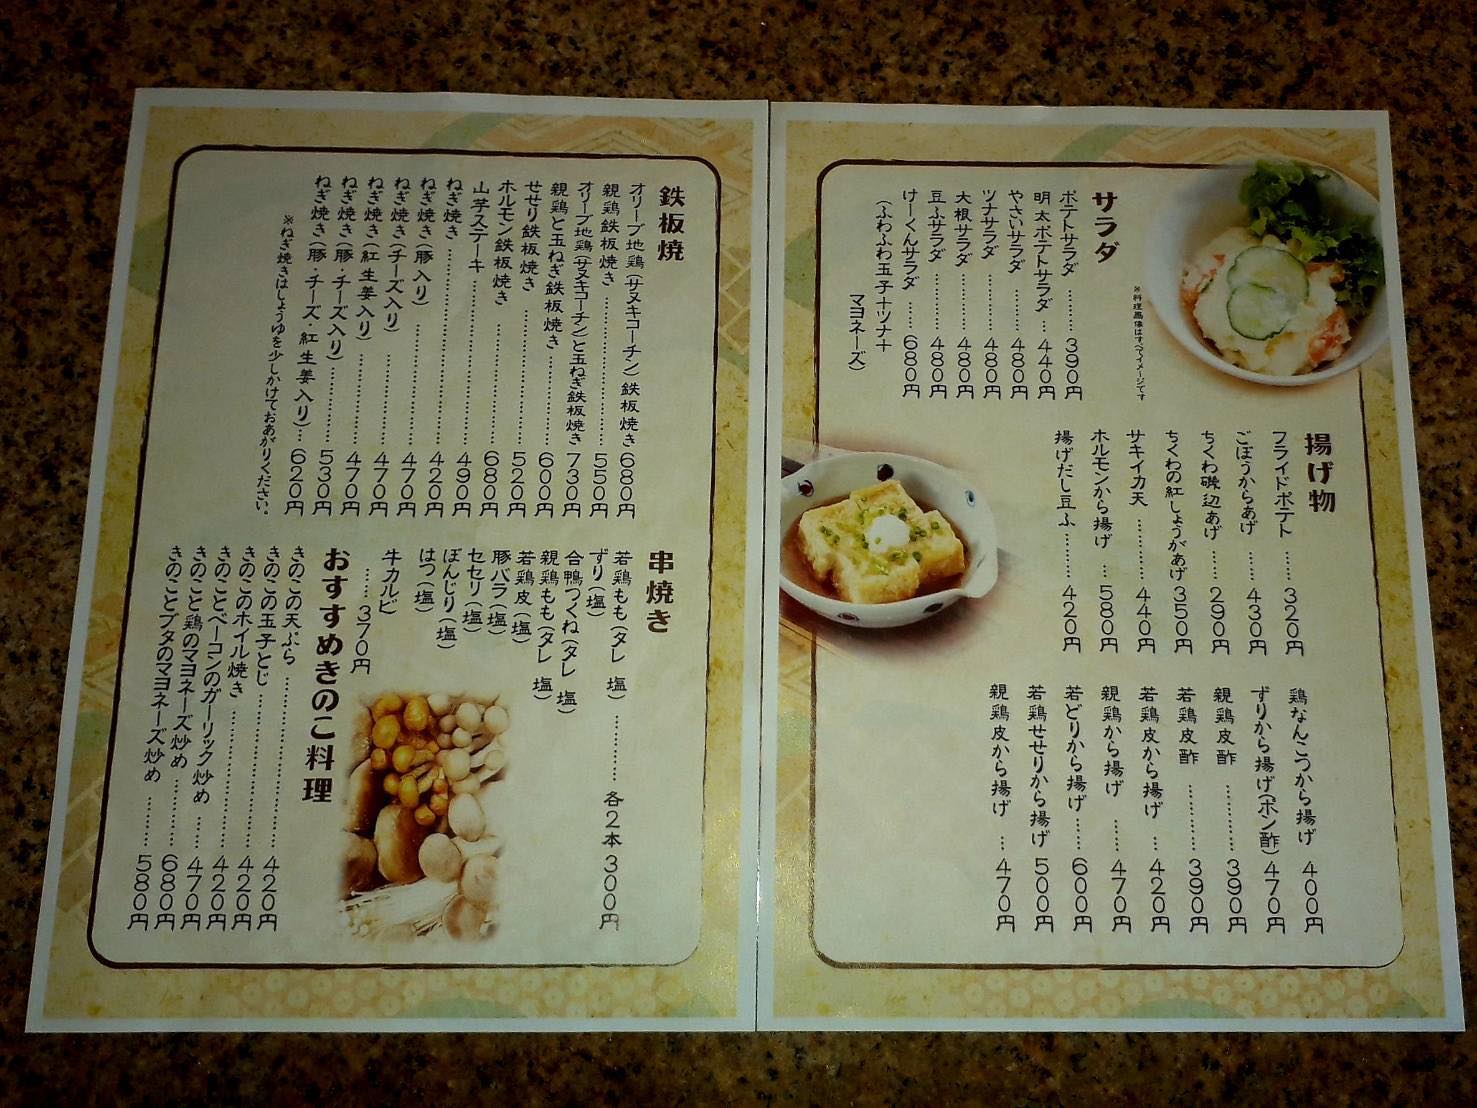 サラダ
※料理画像はすべてイメージです
ポテトサラダ………390円
明太ポテトサラダ…440円
やさいサラダ………480円
ツナサラダ………480円
大根サラダ………480円
豆ふサラダ………480円
けーくんサラダ………680円
(ふわふわ玉子+ツナ+
マヨネーズ)
揚げ物
フライドポテト……320円
ごぼうからあげ……430円
ちくわ磯辺あげ……290円
ちくわの紅しょうがあげ 350円
サキイカ天………440円
ホルモンから揚げ…580円
揚げだし豆ふ………420円
鶏なんこつから揚げ 400円
ずりから揚げ(ポン酢)470円
親鶏皮酢………390円
若鶏皮酢………390円
若鶏皮から揚げ…420円
親鶏から揚げ……470円
若どりから揚げ……600円
若鶏せせりから揚げ 500円
親鶏皮から揚げ…470円
鉄板焼
オリーブ地鶏(サヌキコーチン)鉄板焼き 680円
親鶏鉄板焼き………550円
オリーブ地鶏(サヌキコーチン)と玉ねぎ鉄板焼き 730円
親鶏と玉ねぎ鉄板焼き………600円
せせり鉄板焼き………520円
ホルモン鉄板焼き………680円
山芋ステーキ………490円
ねぎ焼き………420円
ねぎ焼き(豚入り)………470円
ねぎ焼き(チーズ入り)………470円
ねぎ焼き(紅生姜入り)………470円
ねぎ焼き(豚・チーズ入り)………530円
ねぎ焼き(豚・チーズ・紅生姜入り)…620円
※ねぎ焼きはしょうゆを少しかけておあがりください。
串焼き
若鶏もも(タレ 塩)………各2本300円
ずり(塩)
合鴨つくね(タレ 塩)
親鶏もも(タレ 塩)
若鶏皮(塩)
豚バラ(塩)
セセリ(塩)
ぼんじり(塩)
はつ(塩)
牛カルビ
……370円
おすすめきのこ料理
きのこの天ぷら………420円
きのこの玉子とじ………420円
きのこのホイル焼き………420円
きのことベーコンのガーリック炒め……470円
きのこと鶏のマヨネーズ炒め………680円
きのことブタのマヨネーズ炒め……580円